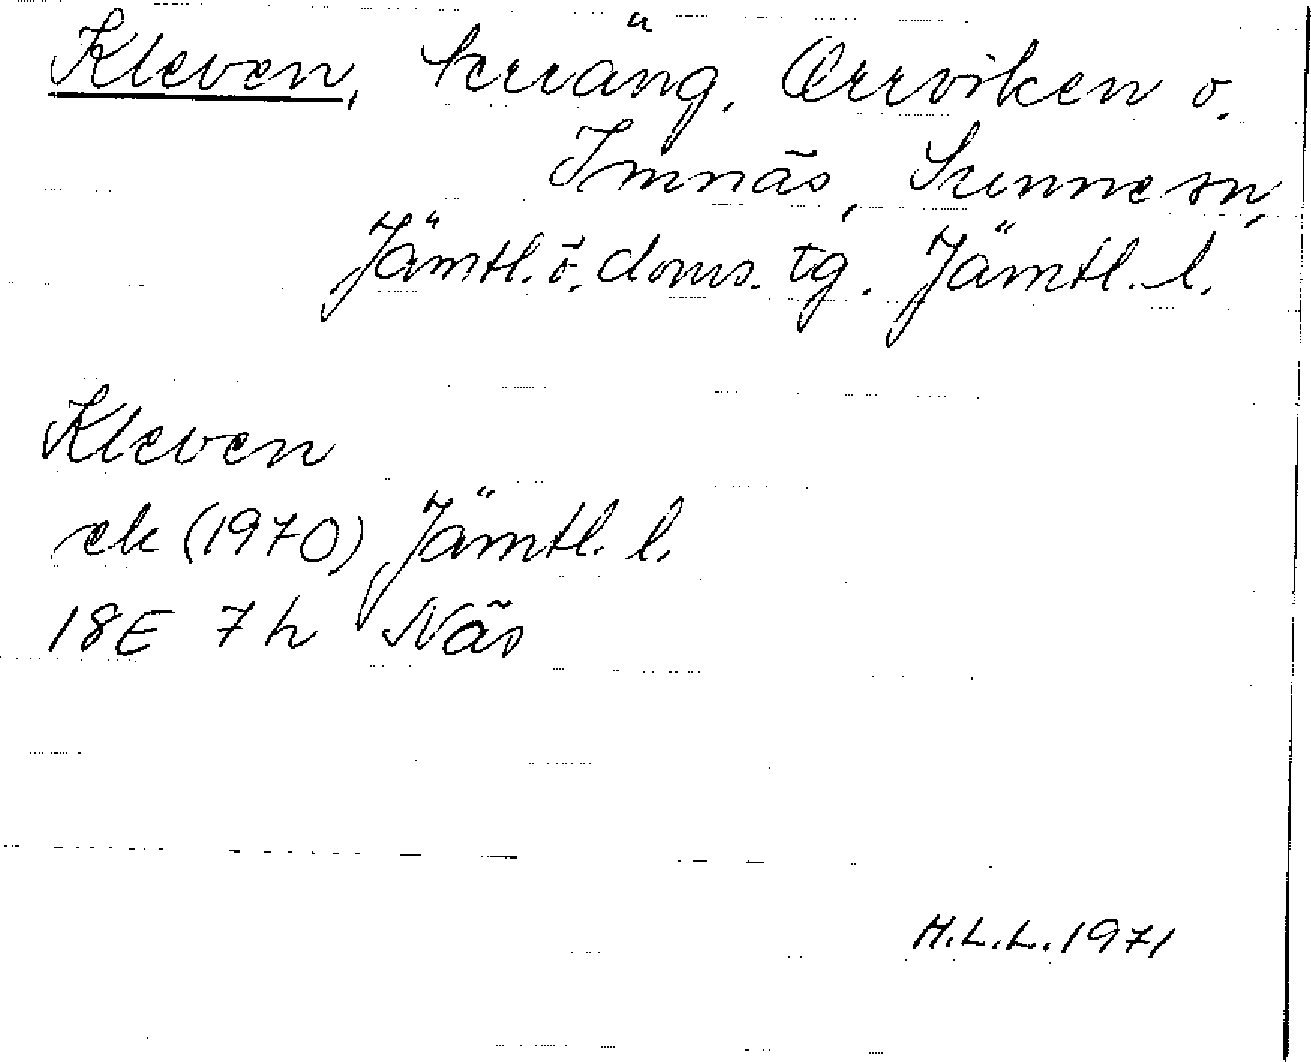 Kleven, terräng, Orrviken o.
Imnäs, Sunne sn,
Jämtl. ö. doms. tg. Jämtl. l.
Kleven
ek (1970) Jämtl. l.
18E 7h Näs
H.L.L. 1971